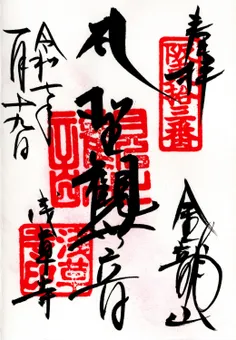 奉拝
坂東拾三番
金龍山
聖観世音
令和七年
一月十九日
浅草寺